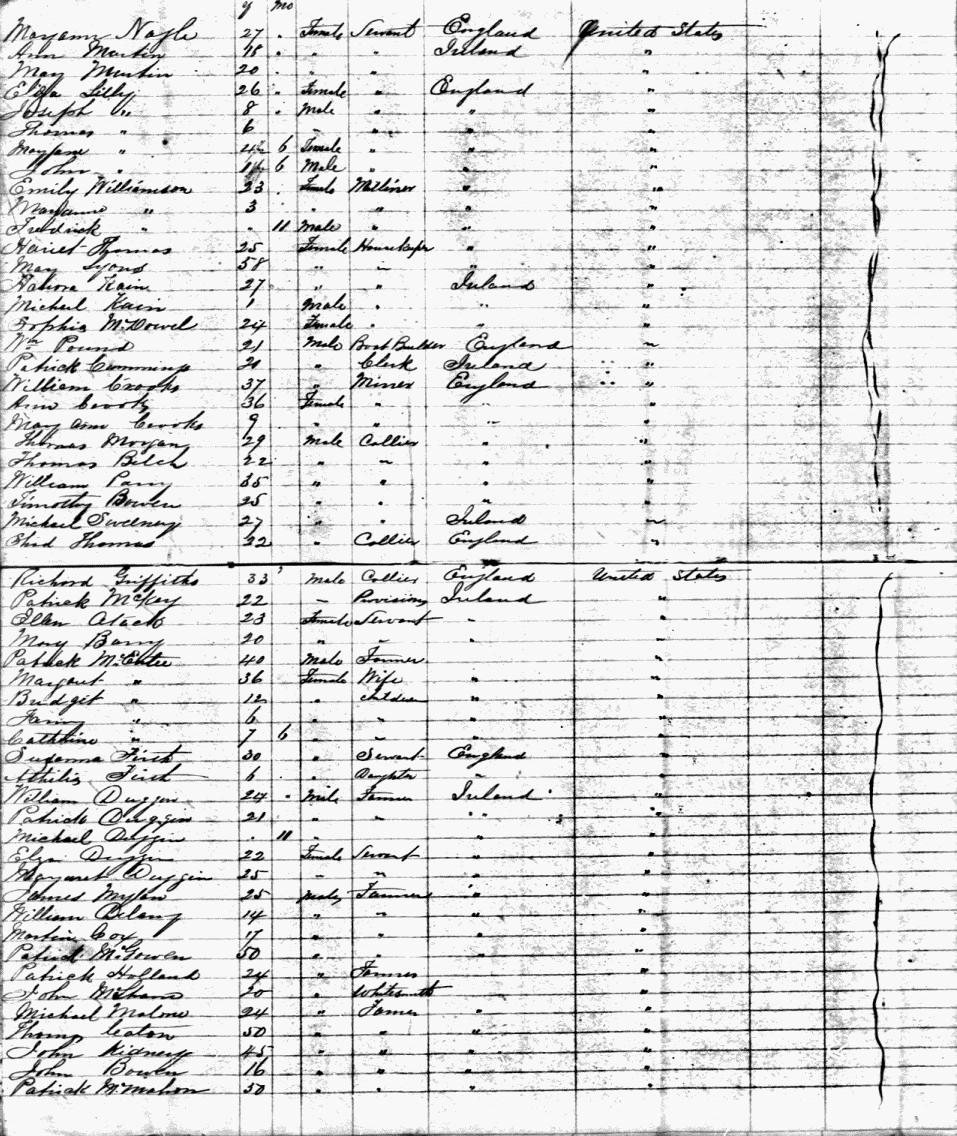 y mo
Maryann Nagle 27 " Female Servant England United States
Ann Martin 18 " " " Ireland "
May Martin 20 " " " "
Eliza Lilly 26 " Female " England "
Joseph " 8 " Male " " "
Thomas " 6 " " " "
Maryjane " 6 Female " " "
John " 6 Male " " "
Emily Williamson 23 Female Milliner " "
Maryanne " 3 " " " "
Fredrick " " 11 Male " " "
Hariet Thomas 25 Female Housekeeper " "
May Lyons 58 " " " "
Hanora Kain 27 " " Ireland "
Michael Kain 1 Male " " "
Sophia McDowel 24 Female " " "
Wm Pound 21 Male Boat Builder England "
Patrick Cummings " Clerk Ireland "
William Crooks 37 " Miner England "
Ann Crooks 36 Female " " "
Mary Ann Crooks 9 " " " "
Thomas Morgan 29 Male Collier " "
Thomas Belch 22 " " " "
William Parry 35 " " " "
Timothy Bowen 25 " " " "
Michael Sweeney 27 " " Ireland "
Thomas 22 " Collier England "
Richard Griffiths 33 Male Collier England United States
Patrick McKay 22 " Ireland "
Ellen 23 Female Servant " "
Mary Barry 20 " " " "
Patrick McEntee 40 Male Farmer " "
Margaret " 36 Female Wife " "
Bridget " 12 " children " "
Fanny " 6 " " " "
Cathrine " 7 6 " " " "
Susanna Firth 30 " Servant England "
Firth 6 " Daughter " "
William Duggin 24 " Male Farmer Ireland "
Patrick Duggin 21 " " " "
Michael Duggin " 11 " " "
Eliza Duggin 22 Female Servant " "
Margaret Duggin 25 " " " "
James 25 Farmers " "
William Delany 14 " " " "
Martin Cox 17 " " " "
Patrick McGowen 50 " " " "
Patrick Holland 24 " Farmer "
John 20 " Whitesmith "
Michael Malone 24 " Farmer " "
Eaton 50 " " " "
John Kidney 45 " " " "
John Bowen 16 " " " "
Patrick McMahon 50 " " " "